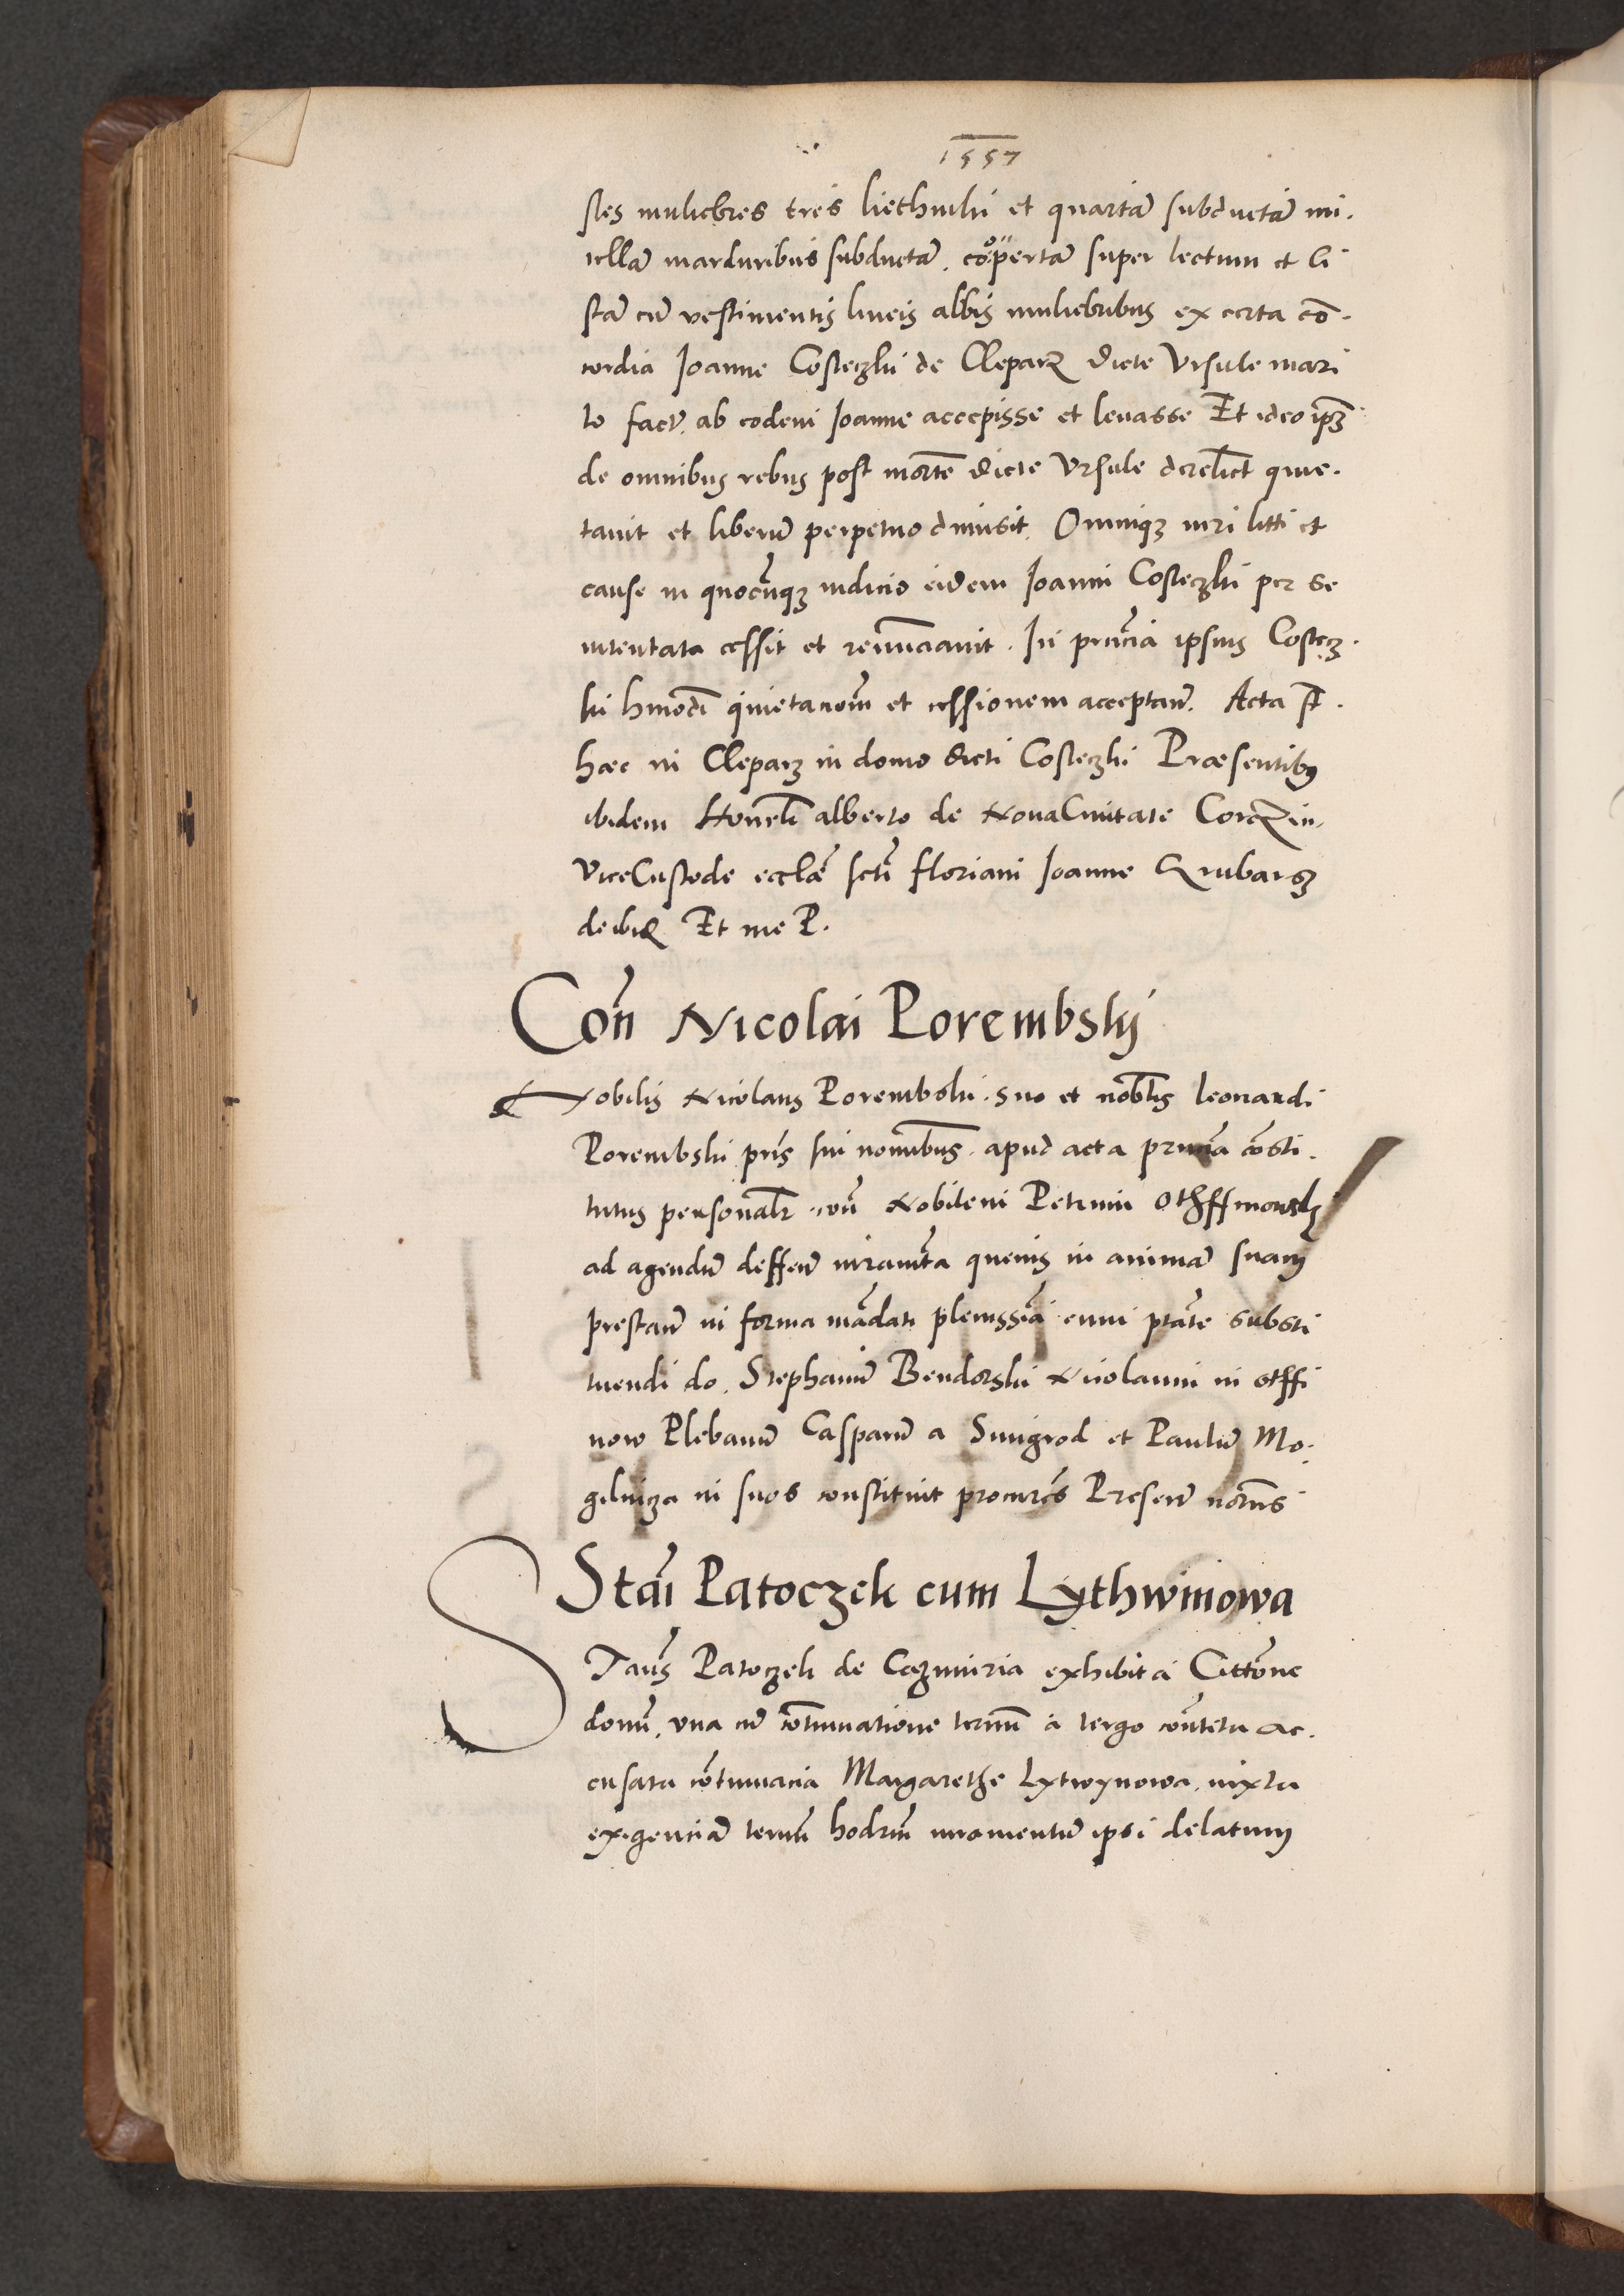 1557
stes muliebres tres liethniki et quartã subductã mi.
cellã marduribus subductã. coopertã super lectum et li
stã cũ vestimentis lineis albis muliebribus ex certa cõ.
cordia Joanne Costeczki de Cleparz dicte Ursule mari
to fact. ab eodem Joanne accepisse et levasse Et ideo ipsz
de omnibus rebus post mortẽ dicte Ursule derelict quie.
tavit et liberũ perpetuo dimisit. Omniqz iuri litti et
cause in quocũqz iudicio eidem Joanni Costeczki per se
intentata cessit et renunciavit. In pñcia ipsius Costecz.
ki hmodi quietacioñm et cessionem acceptanñ. Acta st.
haec in Cleparz in domo dicti Costeczki Praesentibus
ibidem Honrli alberto de Nova Civitate Corczin.
ViceCustode ecclæ scti floriani Joanne Grubarz
de ibid Et me P.
Con Nicolai Porembskij
Nobilis Nicolaus Porembski. suo et nobilis leonardi
Porembski pris sui nominibus. apud acta prñcia cõsti.
tutus personalr coñ Nobilem Petrum Othffinowsky
ad agendũ deffenñ iuramta quevis in animã suam
prestanñ in forma mãdati plenissia cum ptãte substi
tuendi do. Stephanũ Bendorski Nicolaum in othffi
now Plebanũ Casparũ a Smigrod et Paulũ Mo.
gilnicza in suos constituit procures Presenñ notriis
Stai Patoczek cum Lythwinowa
STaus Patoczek de Cazmiria exhibita Cittõne
domñ. una cũ cõtinuatione termñ a tergo contetn ac.
cusata cõtumacia Margarethe Lytwynowa. iuxta
exigenciã termñ hodrñ iuramentũ ipsi delatum